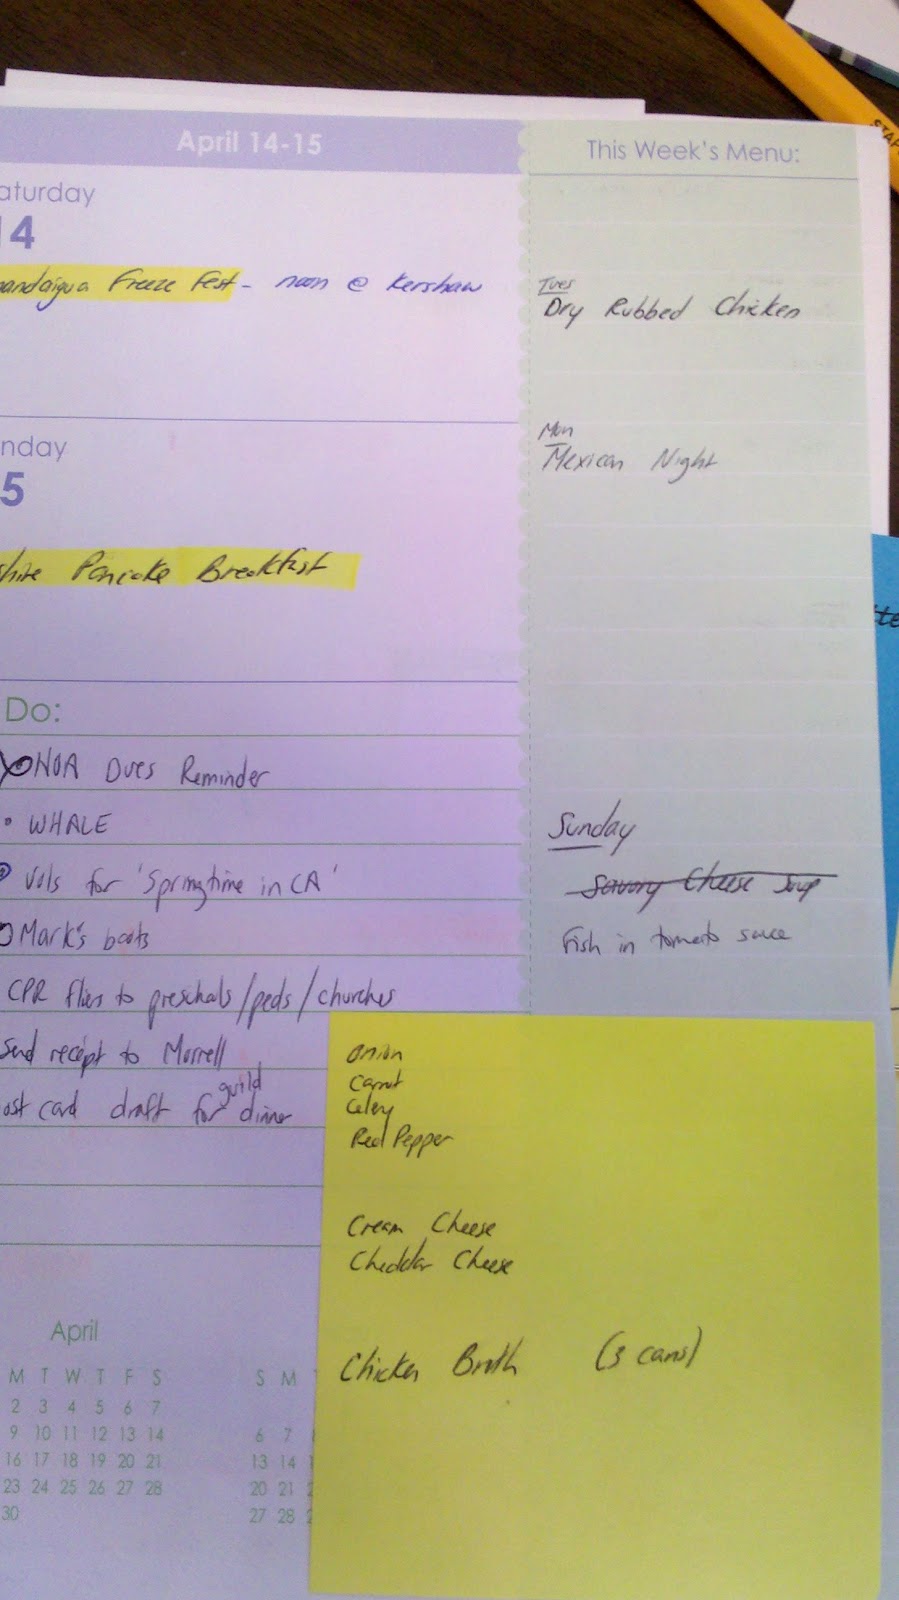 April 14-15
aturday
14
andaigua Freeze Fest - noon @ Kershaw
nday
5
shire Pancake Breakfast
Do:
HOA Dues Reminder
• WHALE
Vols for 'Springtime in CA'
Mark's boots
CPR fliers to preschools/peds/churches
Send receipt to Morrell
ost card draft for guild dinner
April
M T W T F S
2 3 4 5 6 7
9 10 11 12 13 14
16 17 18 19 20 21
23 24 25 26 27 28
30
S M
6 7
13 14
20 21
27 28
This Week's Menu:
Tues
Dry Rubbed Chicken
Mon
Mexican Night
Sunday
Savory Cheese Soup
Fish in tomato sauce
Onion
Carrot
Celery
Red Pepper
Cream Cheese
Cheddar Cheese
Chicken Broth (3 cans)
STAP